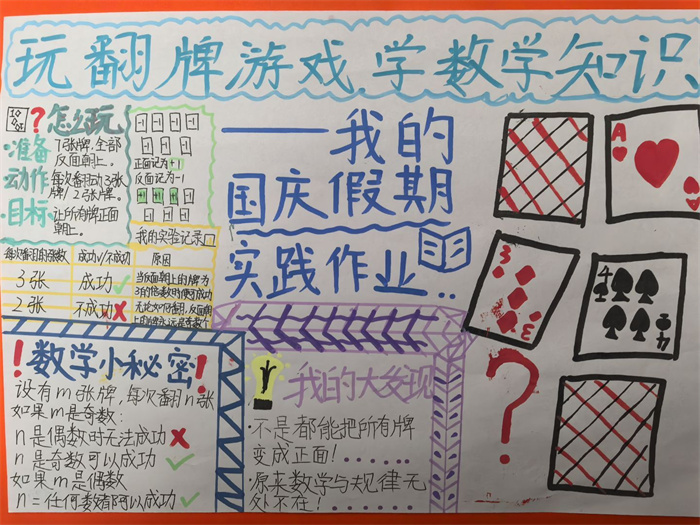 玩翻牌游戏,学数学知识
——我的
国庆假期
实践作业..
?怎么玩
·准备
7张牌,全部
反面朝上。
·动作
每次翻动3张
牌/2张牌。
·目标
让所有牌正面
朝上。
正面记为+1
反面记为-1
我的实验记录
每次翻的张数 成功/不成功 原因
3张 成功✓
2张 不成功✗
当反面朝上的牌为
3的倍数时便可成功
无论如何翻,反面朝
上的牌永远是奇数个
!数学小秘密!
设有m张牌,每次翻n张
如果m是奇数:
n是偶数时无法成功✗
n是奇数可以成功✓
如果m是偶数
n=任何数都可以成功✓
我的大发现
·不是都能把所有牌
变成正面!......
·原来数学与规律无
处不在!......
A
A
3
3
4
4
?